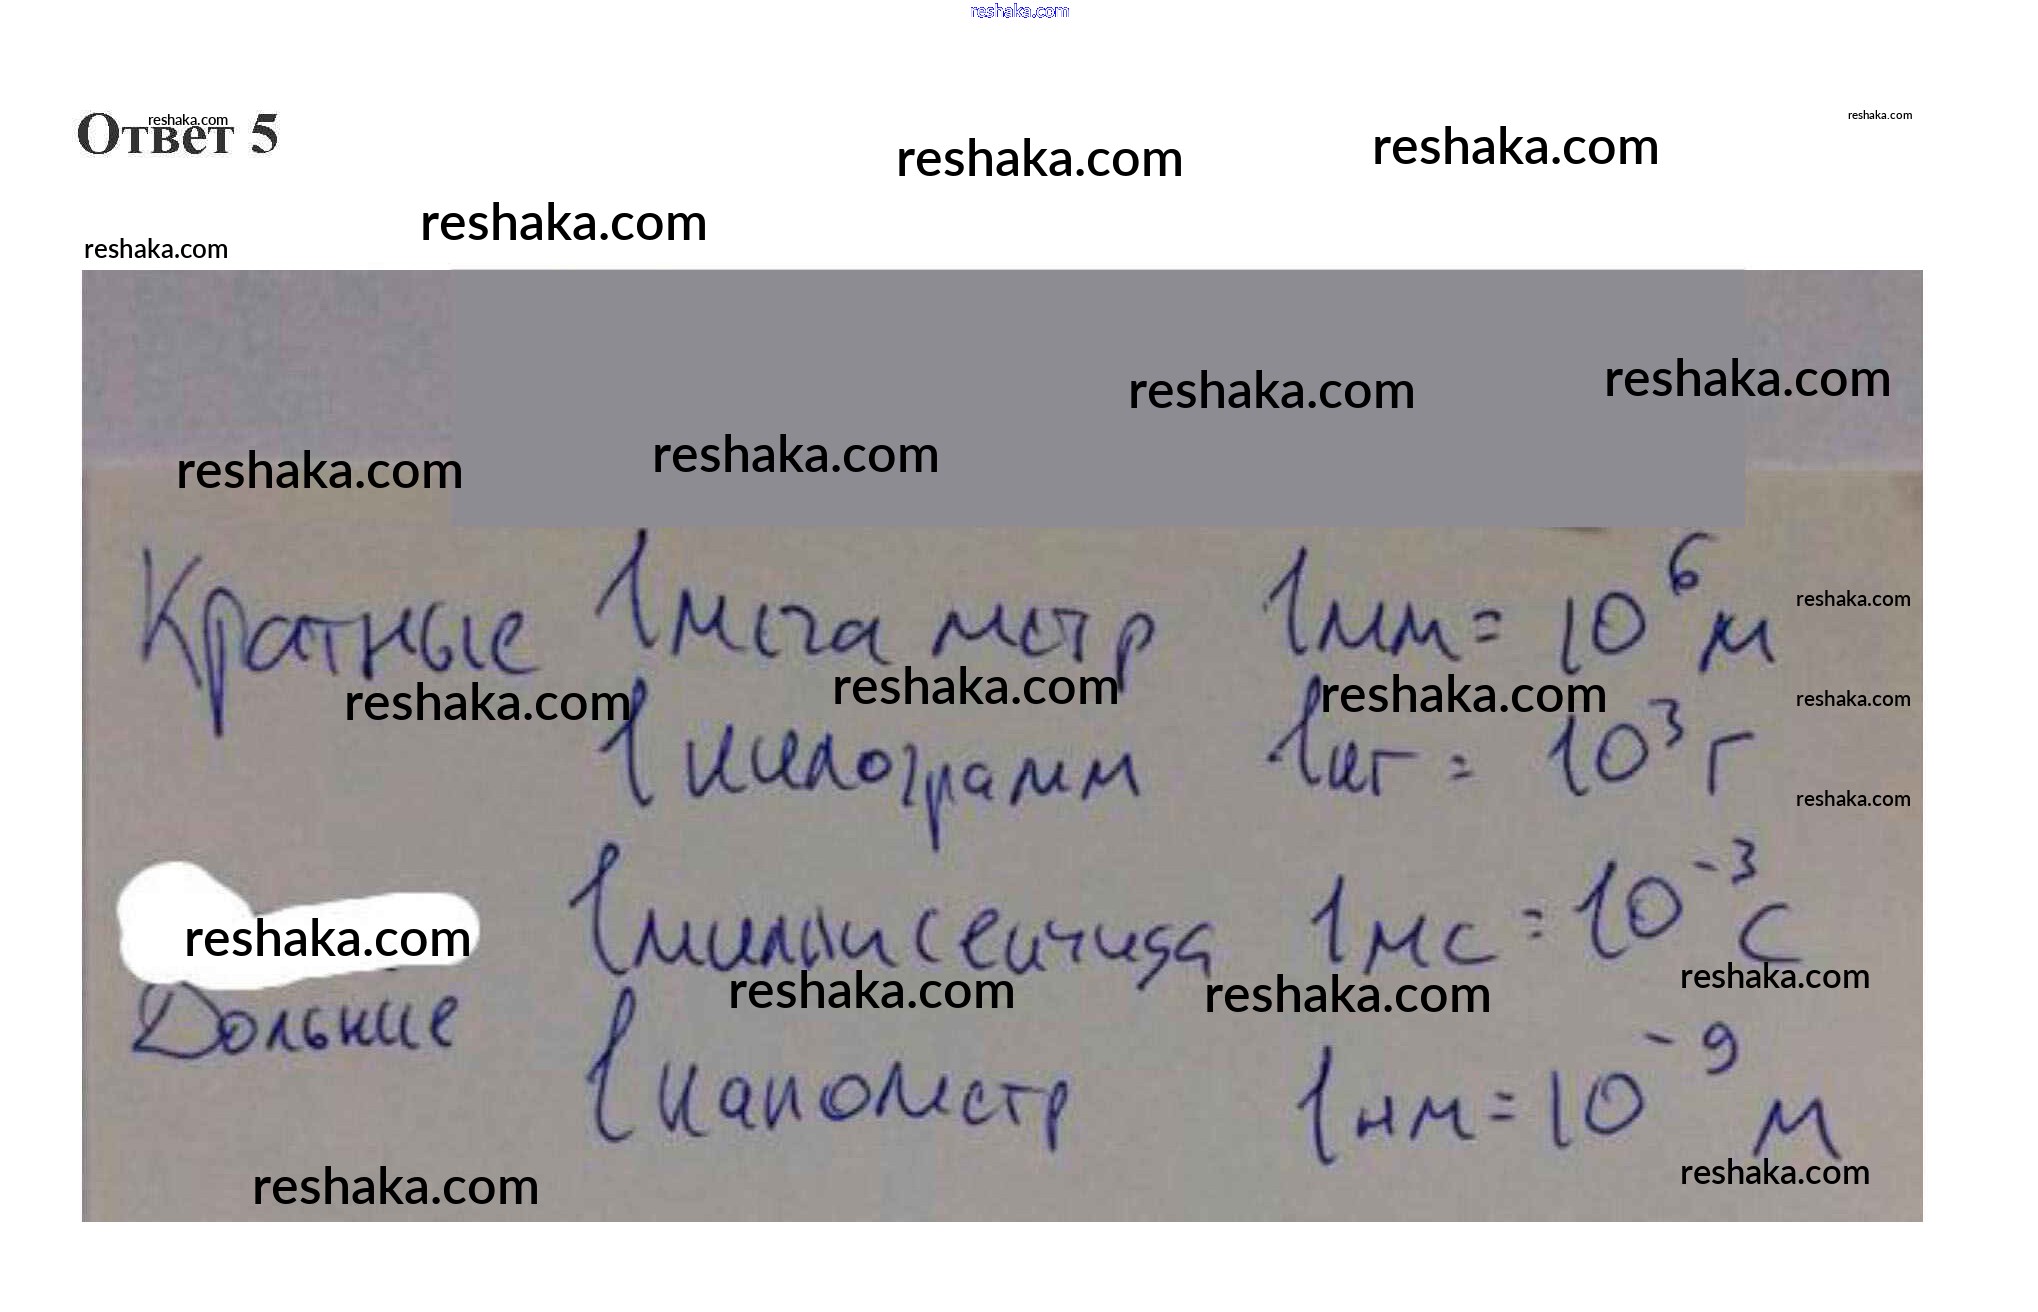 reshaka.com
reshaka.com
Ответ 5
reshaka.com
reshaka.com
reshaka.com
reshaka.com
reshaka.com
reshaka.com
reshaka.com
reshaka.com
reshaka.com
Кратные 1 мега метр 1 Мм = 10^6 м
reshaka.com
reshaka.com
reshaka.com
reshaka.com
reshaka.com
1 килограмм 1 кг = 10^3 г
reshaka.com
1 миллисекунда 1 мс = 10^-3 с
reshaka.com
reshaka.com
reshaka.com
reshaka.com
Дольние
1 нанометр 1 нм = 10^-9 м
reshaka.com
reshaka.com